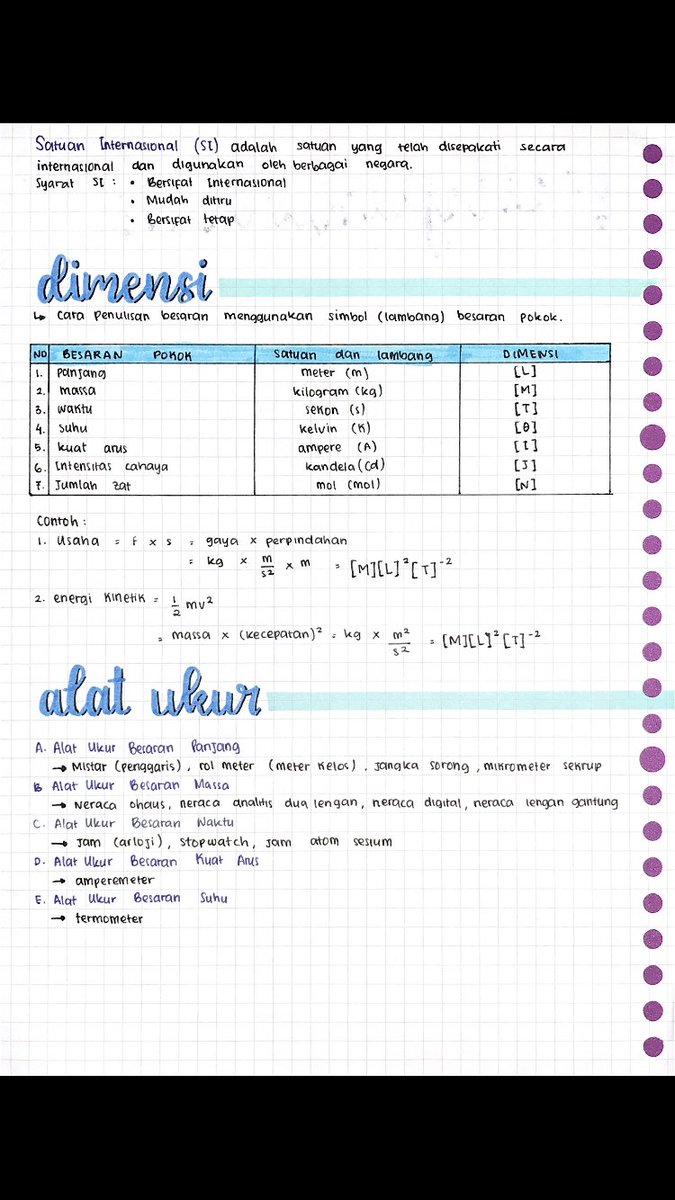 Satuan Internasional (SI) adalah satuan yang telah disepakati secara
internasional dan digunakan oleh berbagai negara.
Syarat SI : • Bersifat Internasional
• Mudah ditiru
• Bersifat tetap
dimensi
↳ cara penulisan besaran menggunakan simbol (lambang) besaran pokok.
NO BESARAN POKOK Satuan dan lambang DIMENSI
1. panjang meter (m) [L]
2. massa kilogram (kg) [M]
3. waktu sekon (s) [T]
4. suhu kelvin (K) [θ]
5. kuat arus ampere (A) [I]
6. Intensitas cahaya kandela (Cd) [J]
7. Jumlah zat mol (mol) [N]
Contoh :
1. Usaha = F x s = gaya x perpindahan
= kg x m/s² x m = [M][L]²[T]⁻²
2. energi kinetik = 1/2 mv²
= massa x (kecepatan)² = kg x m²/s² = [M][L]²[T]⁻²
alat ukur
A. Alat Ukur Besaran Panjang
→ Mistar (penggaris), rol meter (meter kelos), jangka sorong, mikrometer sekrup
B. Alat Ukur Besaran Massa
→ Neraca ohaus, neraca analitis dua lengan, neraca digital, neraca lengan gantung
C. Alat Ukur Besaran Waktu
→ Jam (arloji), stopwatch, jam atom sesium
D. Alat Ukur Besaran Kuat Arus
→ amperemeter
E. Alat Ukur Besaran Suhu
→ termometer